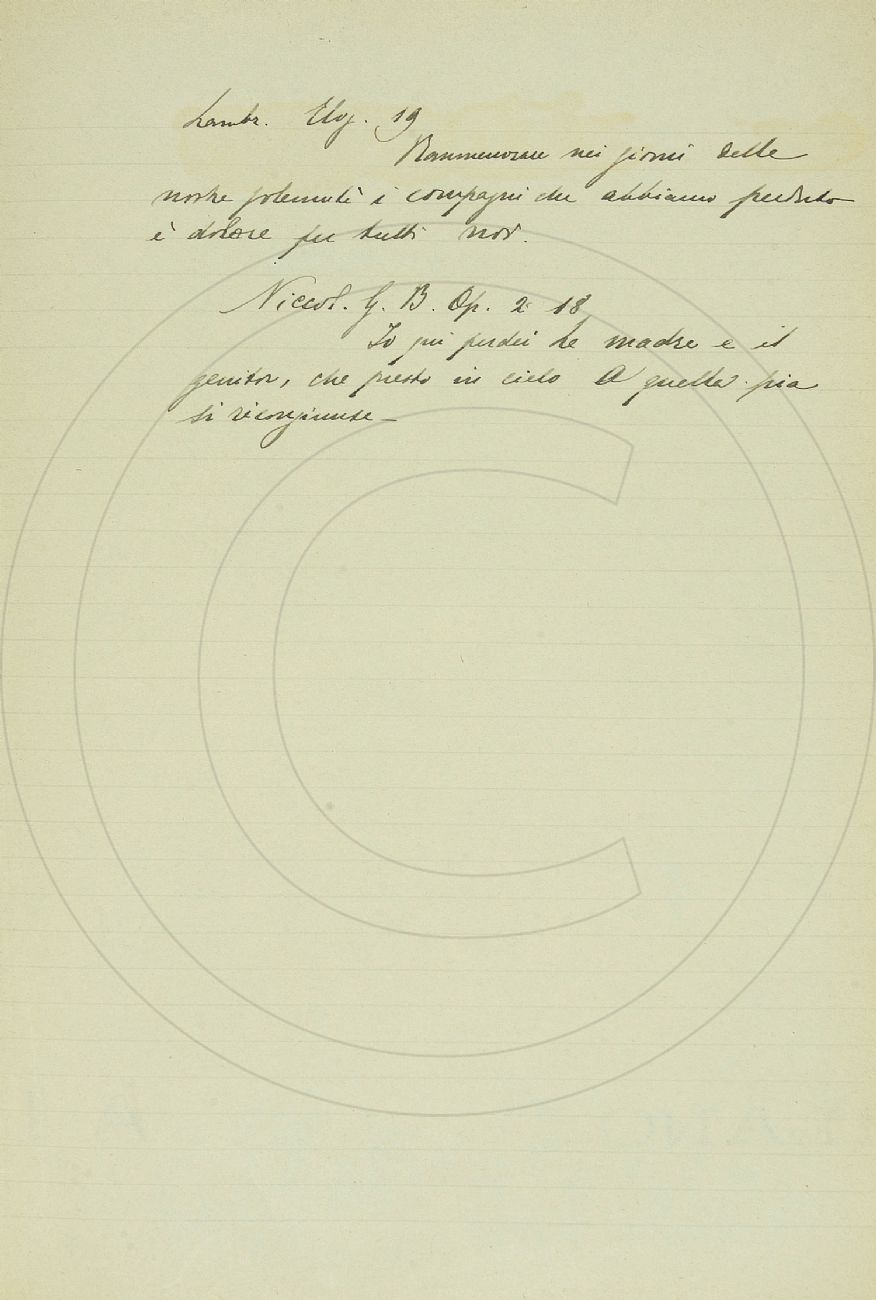 Lambr. Elog. 19
Rammemorare nei giorni delle
nostre solennità i compagni che abbiamo perduto
è dolore per tutti noi.
Niccol. G. B. Op. 2 18
Io qui perdei la madre e il
genitor, che presto in cielo A quella pia
si ricongiunse —